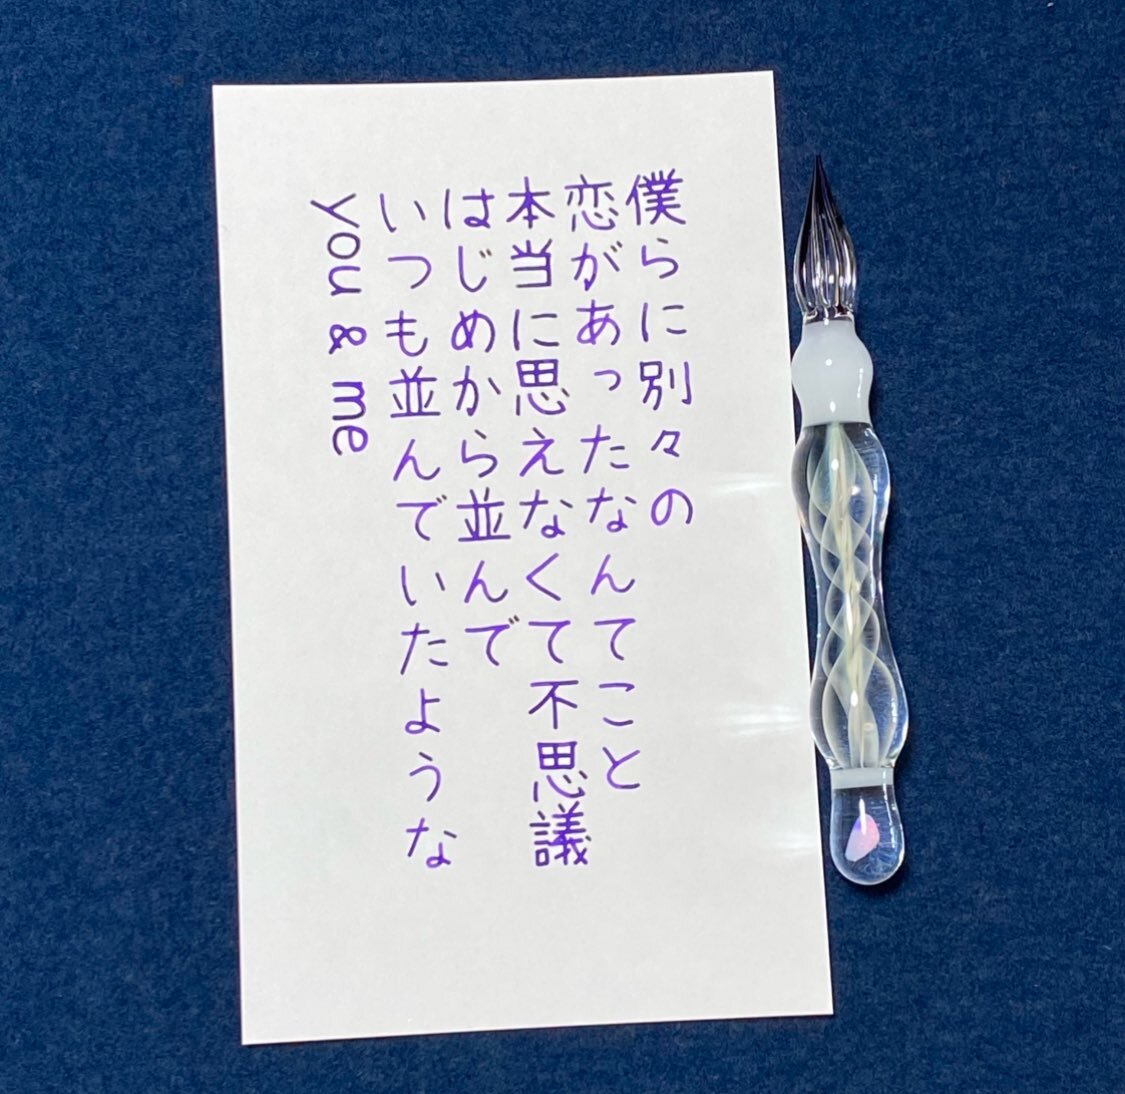 僕らに別々の
恋があったなんてこと
本当に思えなくて不思議
はじめから並んで
いつも並んでいたような
you & me